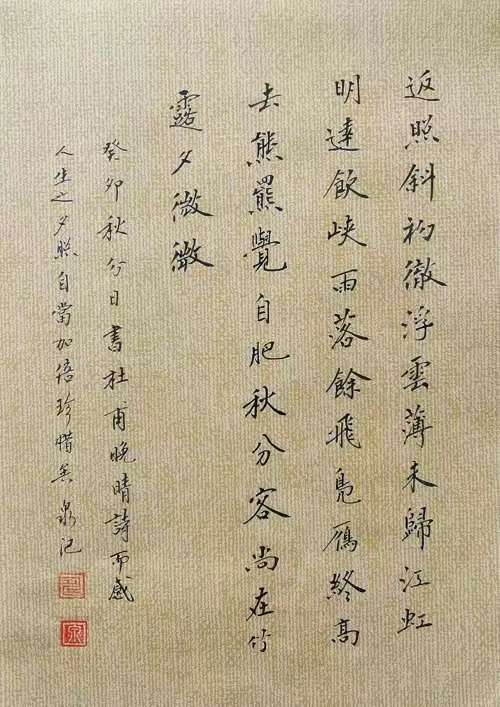 返照斜初徹浮雲薄未歸江虹
明遠飲峽雨落餘飛鳧雁終高
去熊羆覺自肥秋分客尚在竹
露夕微微
癸卯秋分日書杜甫晚晴詩而感
人生之夕照自當加倍珍惜矣泉記